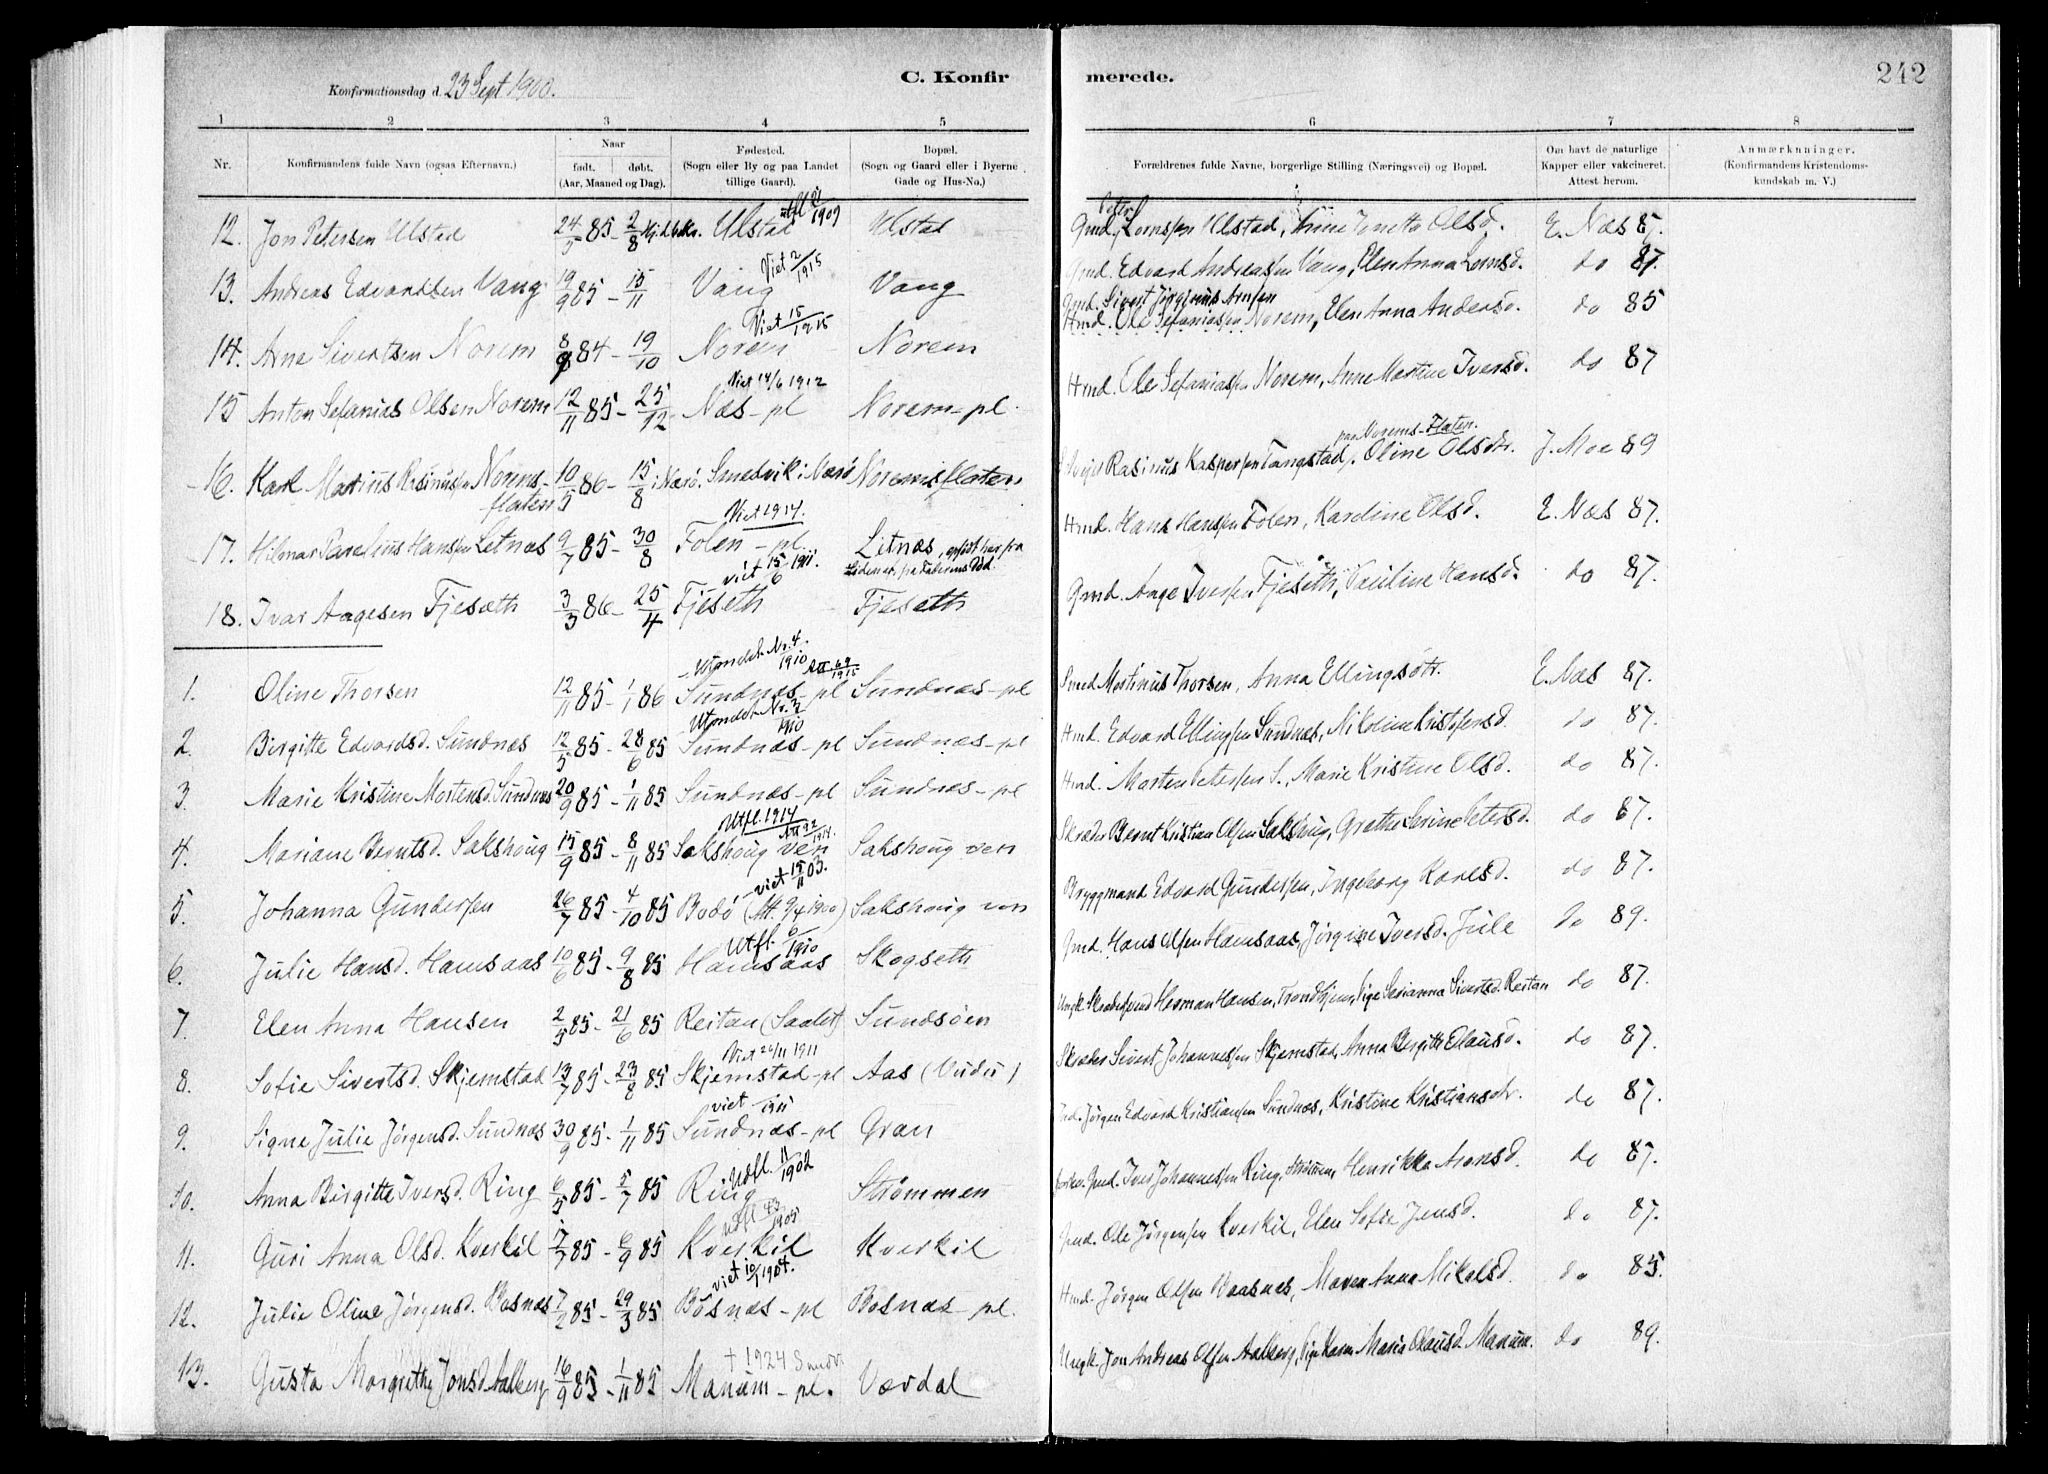 Konfirmationsdag d. 23 Sept 1900.
C. Konfirmerede.
242
1 2 3 4 5 6 7 8
Nr.
Konfirmandens fulde Navn (ogsaa Efternavn.)
Naar
født. døbt.
(Aar, Maaned og Dag).
Fødested.
(Sogn eller By og paa Landet
tillige Gaard).
Bopæl.
(Sogn og Gaard eller i Byerne
Gade og Hus-No.)
Forældrenes fulde Navne, borgerlige Stilling (Næringsvei) og Bopæl.
Om havt de naturlige
Kapper eller vakcineret.
Attest herom.
Anmærkninger.
(Konfirmandens Kristendoms-
kundskab m. V.)
12. Jon Petersen Ulstad 24/5 85 - 2/8 Ulstad utfl 21/1909 Ulstad Gmd. Peter Ulstad, Olsd. E. Næs 87.
13. Andreas Edvardsen Vang 19/9 85 - 15/11 Vang Viet 2/1915 Vang Gmd. Edvard Andreassen Vang, Elen Anna do 87.
14. Arne Sivertsen Norem 8/9 84 - 19/10 Norem Viet 15/1915 Norem Gmd. Sivert Jørginus Arnsen Hmd. Ole Sefaniassen Norem, Elen Anna Andersd. do 85
15 Anton Sefanias Olsen Norem 12/11 85 - 25/12 Næs - pl Viet 14/6 1912 Norem - pl. Hmd. Ole Sefaniassen Norem, Anne Martine Iversd. do 87
16. Karl Marius Rasinussen Norems- flaten 10/5 86 - 15/8 i Nærø. Smedvik i Nærø Noremsflaten Rasinus Kaspersen Tangstad, paa Norems-Flaten. Oline Olsdtr. J. Moe 89
17. Hilmar Parelius Hanssen Letnæs 9/7 85 - 30/8 Folen - pl Viet 1914. Letnæs, opfødt her fra Faderens Død. Hmd. Hans Hanssen Folen, Karoline Olsd. E. Næs 87.
18. Ivar Aagesen Fjesæth 3/3 86 - 25/4 Fjeseth viet 15/6 1911. Fjeseth Gmd. Aage Iverssen Fjeseth, Pauline Hansd. do 87.
1. Oline Thorsen 12/11 85 - 1/1 86 Sundnæs - pl Utmeldt Nr. 4 1910 Sundnæs - pl Smed Martinus Thorsen, Anna Ellingsdtr. E. Næs 87.
2. Birgitte Edvardsd. Sundnæs 12/5 85 - 28/6 85 Sundnæs - pl 1910 Sundnæs - pl Hmd. Edvard Ellingsen Sundnæs, Nikoline Kristofersd. do 87.
3. Marie Kristine Mortensd. Sundnæs 20/9 85 - 1/11 85 Sundnæs - pl Sundnæs - pl Hmd. Morten Petersen S., Marie Kristine Olsd. do 87.
4. Mariane Berntsd. Sakshoug 15/9 85 - 8/11 85 Sakshoug ven Utfl. 1914 Sakshoug ven Skræder Bernt Kristian Olsen Sakshoug, Grethe Serine Petersd. do 87.
5. Johanna Gundersen 26/7 85 - 4/10 85 Bodø (Att. 9/4 1900) viet 15/11 03. Sakshoug ven Bryggmand Edvard Gundersen, Ingeborg Karlsd. do 87.
6. Julie Hansd. Hamsaas 10/6 85 - 9/8 85 Hamsaas Utfl. 6/1910 Skogseth Gmd. Hans Olsen Hamsaas, Jørgine Iversd. Jule do 89.
7. Elen Anna Hansen 2/5 85 - 21/6 85 Reitan (Saalet) Sundsøen Ungk. Skrædersvend Herman Hansen, Trondhjem, Pige Serianna Sivertsd. Reitan do 87.
8. Sofie Sivertsd. Skjemstad 13/7 85 - 23/8 85 Skjemstad - pl Viet 26/11 1911 Aas Skræder Sivert Johannessen Skjemstad, Anna Birgitte Olausd. do 87.
9. Signe Julie Jørgensd. Sundnæs 30/9 85 - 1/11 85 Sundnæs - pl viet 1911 Gran Jørgen Edvard Kristiansen Sundnæs, Kristine Kristiansdtr. do 87.
10. Anna Birgitte Iversd. Ring 6/5 85 - 5/7 85 Ring Udfl. 11/1902 Strømmen Gmd. Iver Johannessen Ring, Strømmen, Henrikka Aronsd. do 87.
11. Guri Anna Olsd. Kverkil 7/7 85 - 6/9 85 Kverkil Udfl 1905 Kverkil Gmd. Ole Jørgensen Kverkil, Elen Sofie Jensd. do 87.
12. Julie Oline Jørgensd. Bosnæs 7/2 85 - 29/3 85 Bosnæs - pl viet 10/1 1904. Bosnæs - pl. Hmd. Jørgen Olsen Baasnæs, Maren Anna Mikalsd. do 85.
13. Gusta Margrethe Jonsd. Aalberg 16/9 85 - 1/11 85 Manum - pl. † 1924 Værdal Ungk. Jon Andreas Olsen Aalberg, Pige Karen Marie Olausd. Manum. do 89.